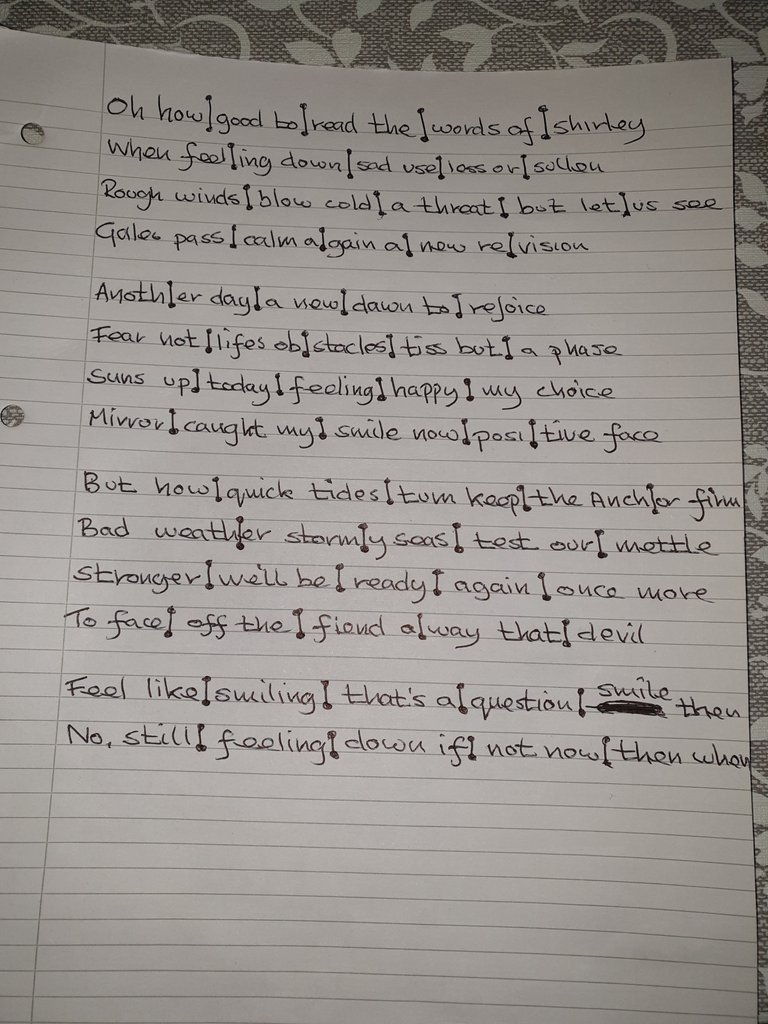 Oh how|good to|read the|words of|Shirley
When feel|ing down|sad use|less or|sullen
Rough winds|blow cold|a threat|but let|us see
Gales pass|calm a|gain a|new re|vision
Anoth|er day|a new|dawn to|rejoice
Fear not|lifes ob|stacles|tiss but|a phase
Suns up|today|feeling|happy|my choice
Mirror|caught my|smile now|posi|tive face
But how|quick tides|turn keep|the Anch|or firm
Bad weath|er storm|y seas|test our|mettle
Stronger|we'll be|ready|again|once more
To face|off the|fiend a|way that|devil
Feel like|smiling|that's a|question|smile then
No, still|feeling|down if|not now|then when